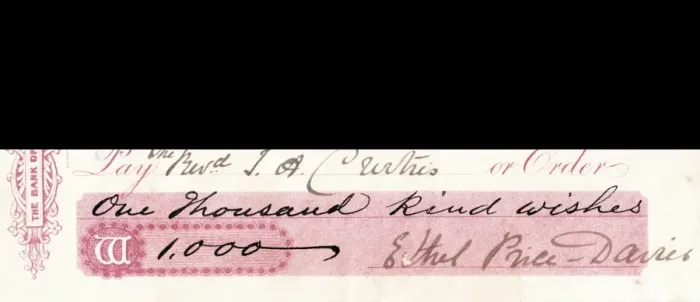 Pay the Revd J. A. Curtis or Order
One Thousand Kind wishes
W 1,000
Ethel Price-Davies
THE BANK OF